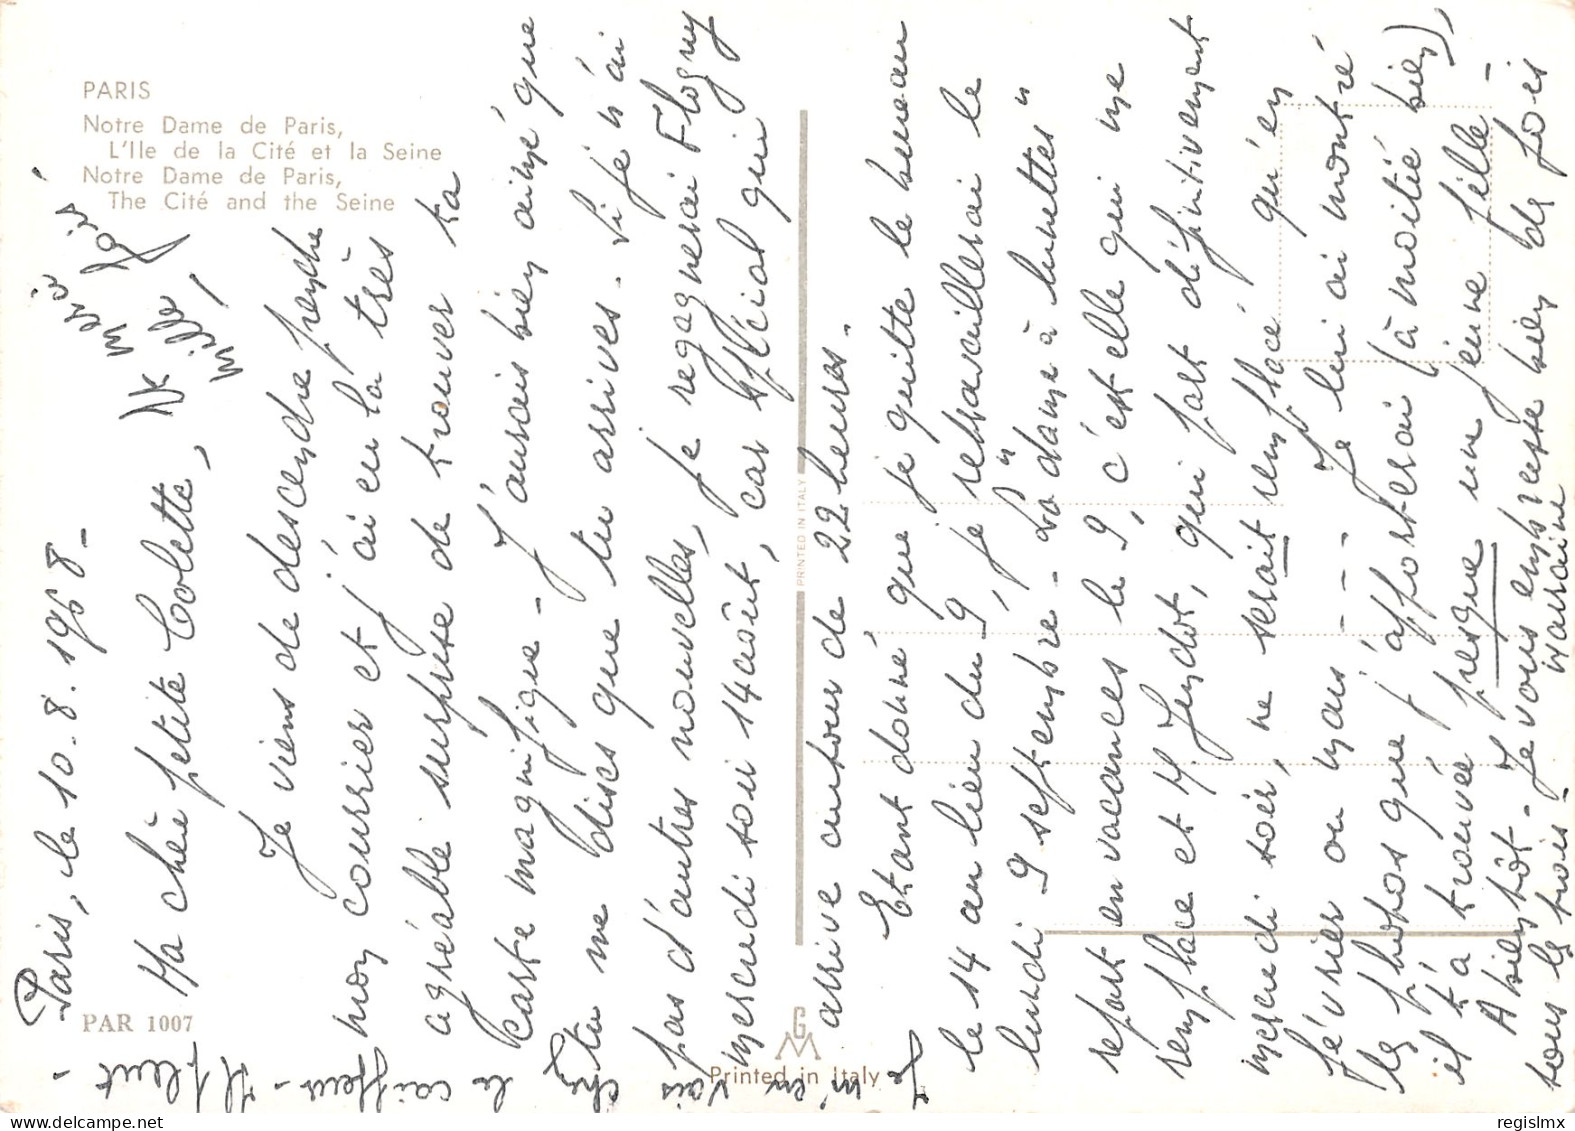 PARIS
Notre Dame de Paris,
L'Ile de la Cité et la Seine
Notre Dame de Paris,
The Cité and the Seine
PAR 1007
PRINTED IN ITALY
Printed in Italy
Paris, le 10.8.1968-
Ma chère petite Colette,
Je viens de descendre prendre
mon courrier et j'ai eu la très
agréable surprise de trouver ta
carte magnifique - J'aurais bien aimé que
tu me dises que tu arrives. Si je n'ai
pas d'autres nouvelles, je regagnerai Flogny
mercredi soir 14 août, car spécial qui
arrive autour de 22 heures.
Etant donné que je quitte le bureau
le 14 au lieu du 9, je retravaillerai le
lundi 9 septembre - La "dame à lunettes"
repart en vacances le 9, c'est elle qui me
remplace et M Jendot, qui part définitivement
mercredi soir, ne serait remplacé qu'en
février ou mars ---- Je lui ai montré
les photos que j'apporterai (à moitié bien),
il t'a trouvée presque une jeune fille -
A bientôt - Je vous embrasse bien des fois
tous les trois -
marraine
merci
mille fois
mille
Je m'en vais chez le coiffeur - Il pleut -
regislmx